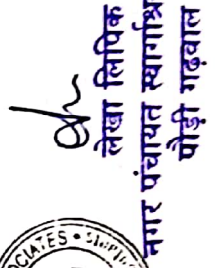 लेखा लिपिक
नगर पंचायत स्वर्गाश्र
पौड़ी गढ़वाल
CIATES